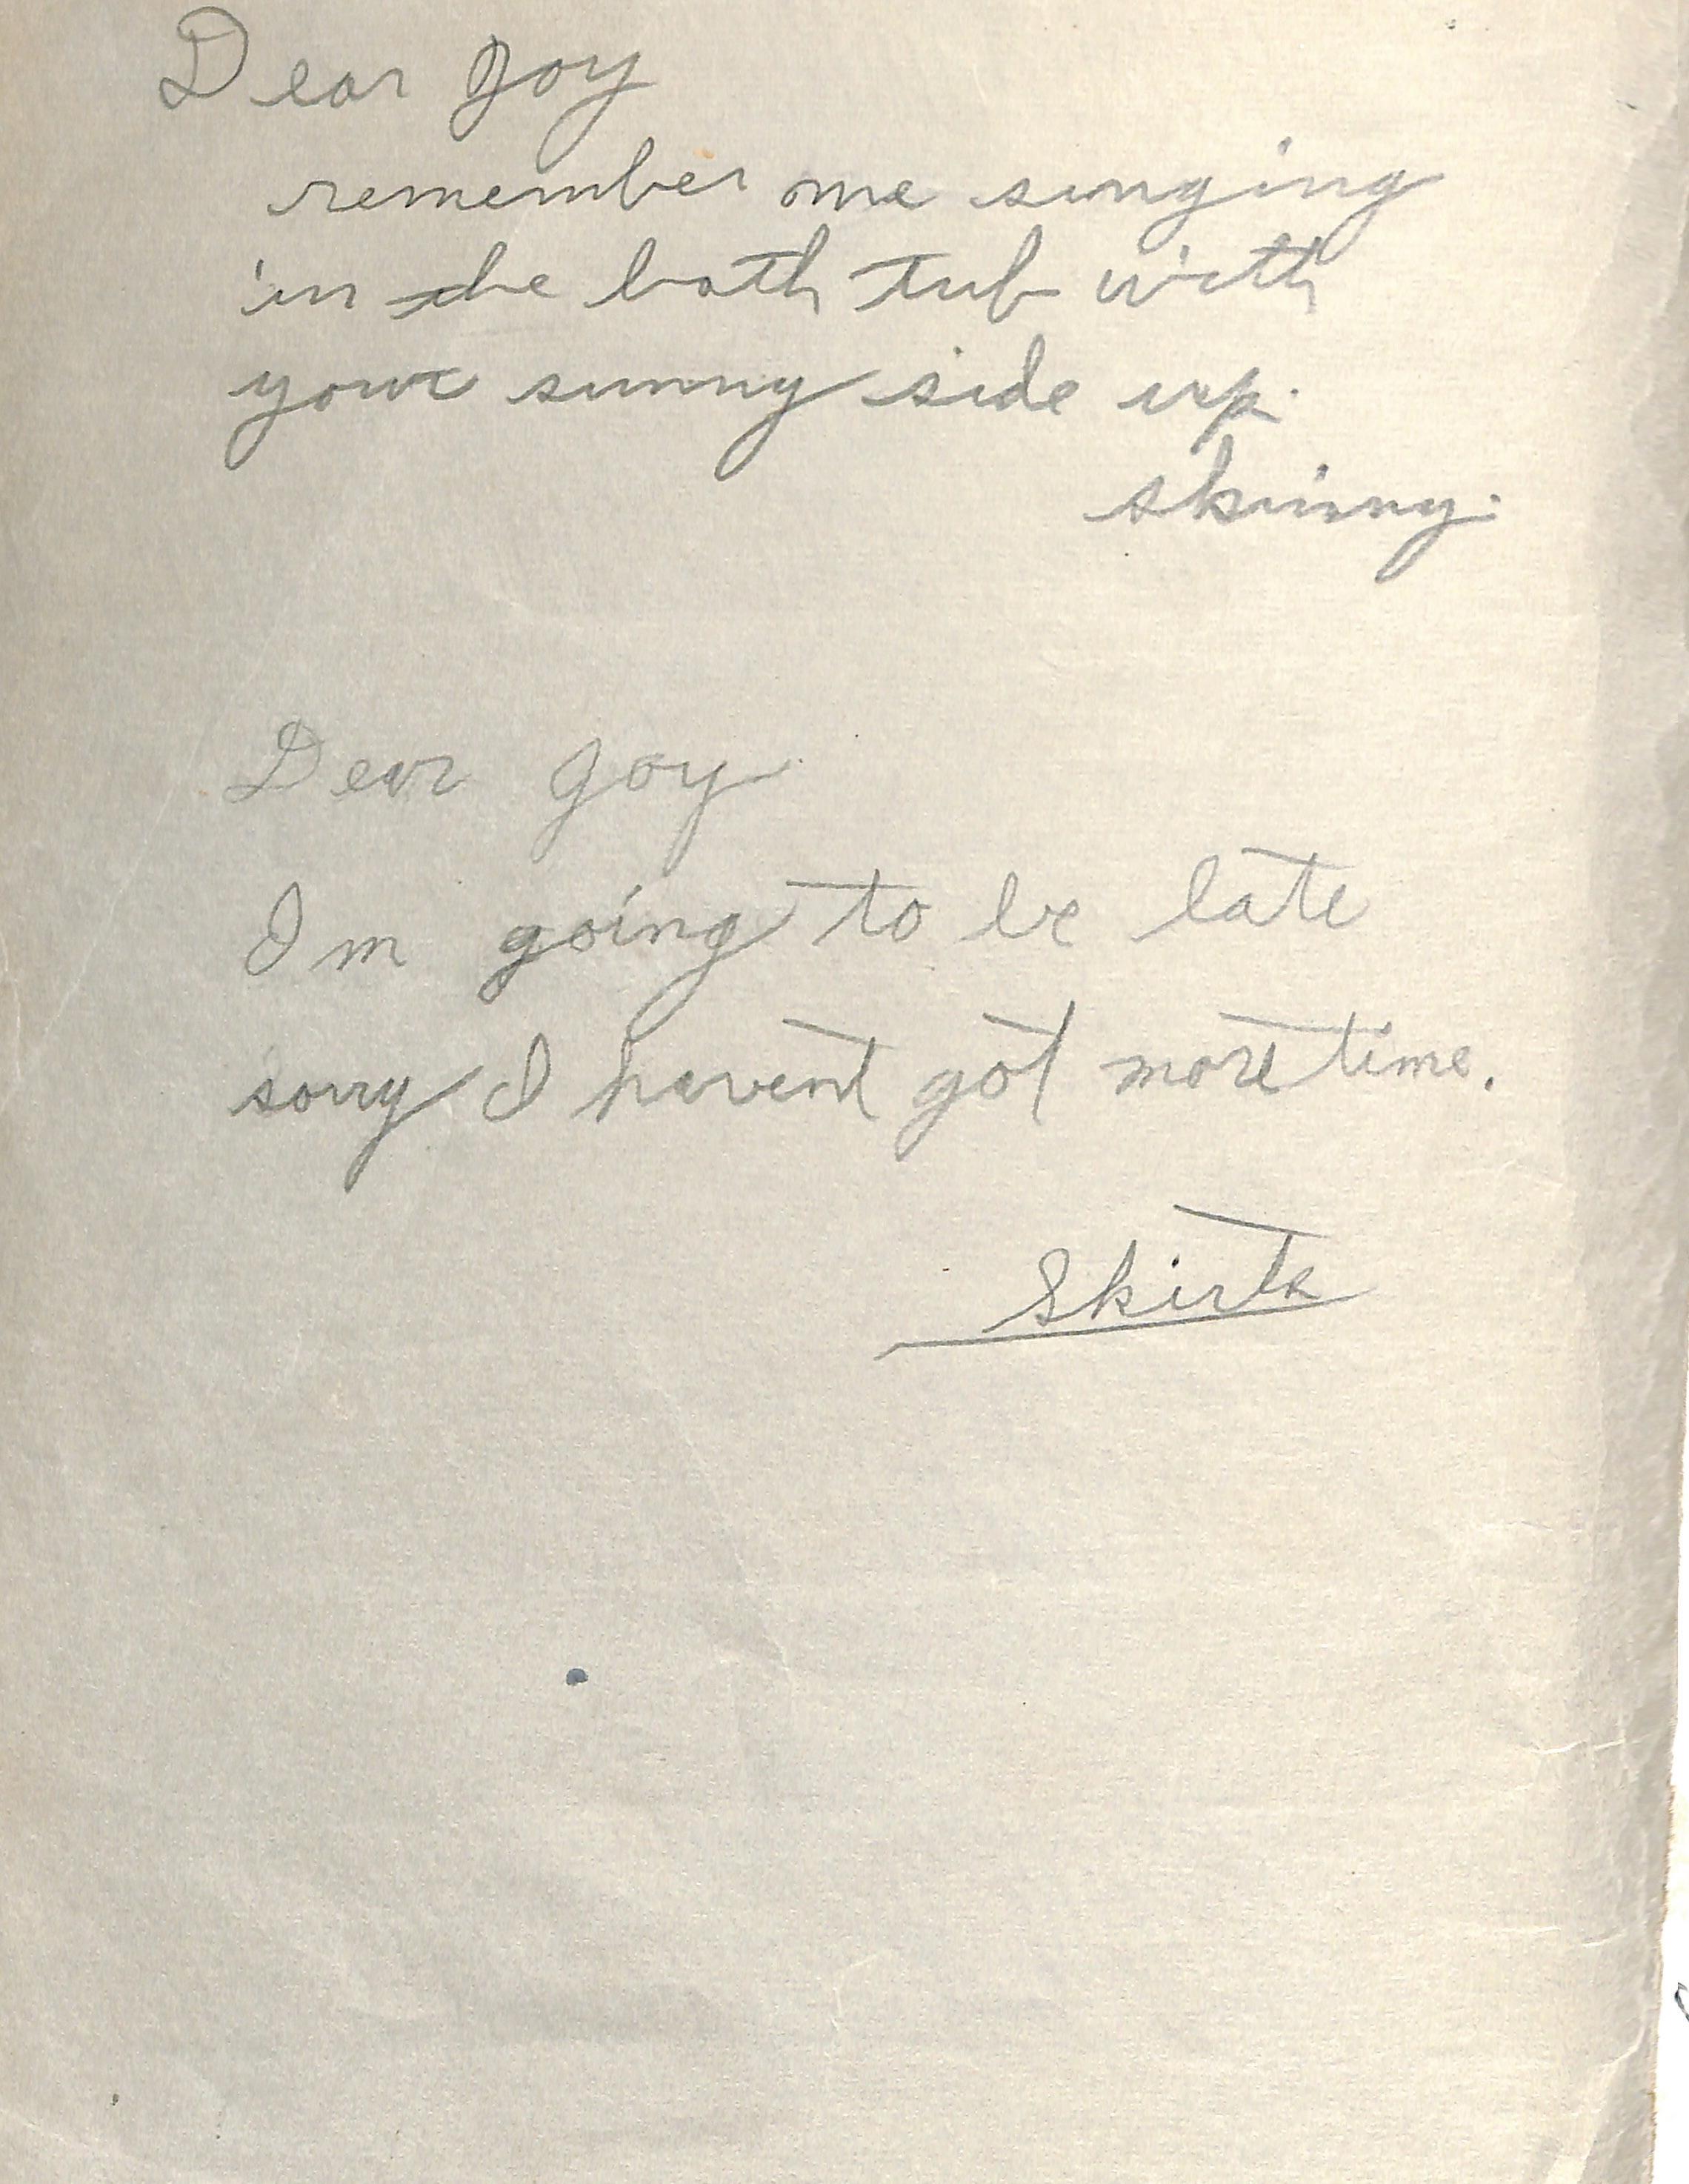 Dear Joy
remember me singing
in the bath tub with
your sunny side up.
skinny.
Dear Joy
Im going to be late
sorry I havent got more time.